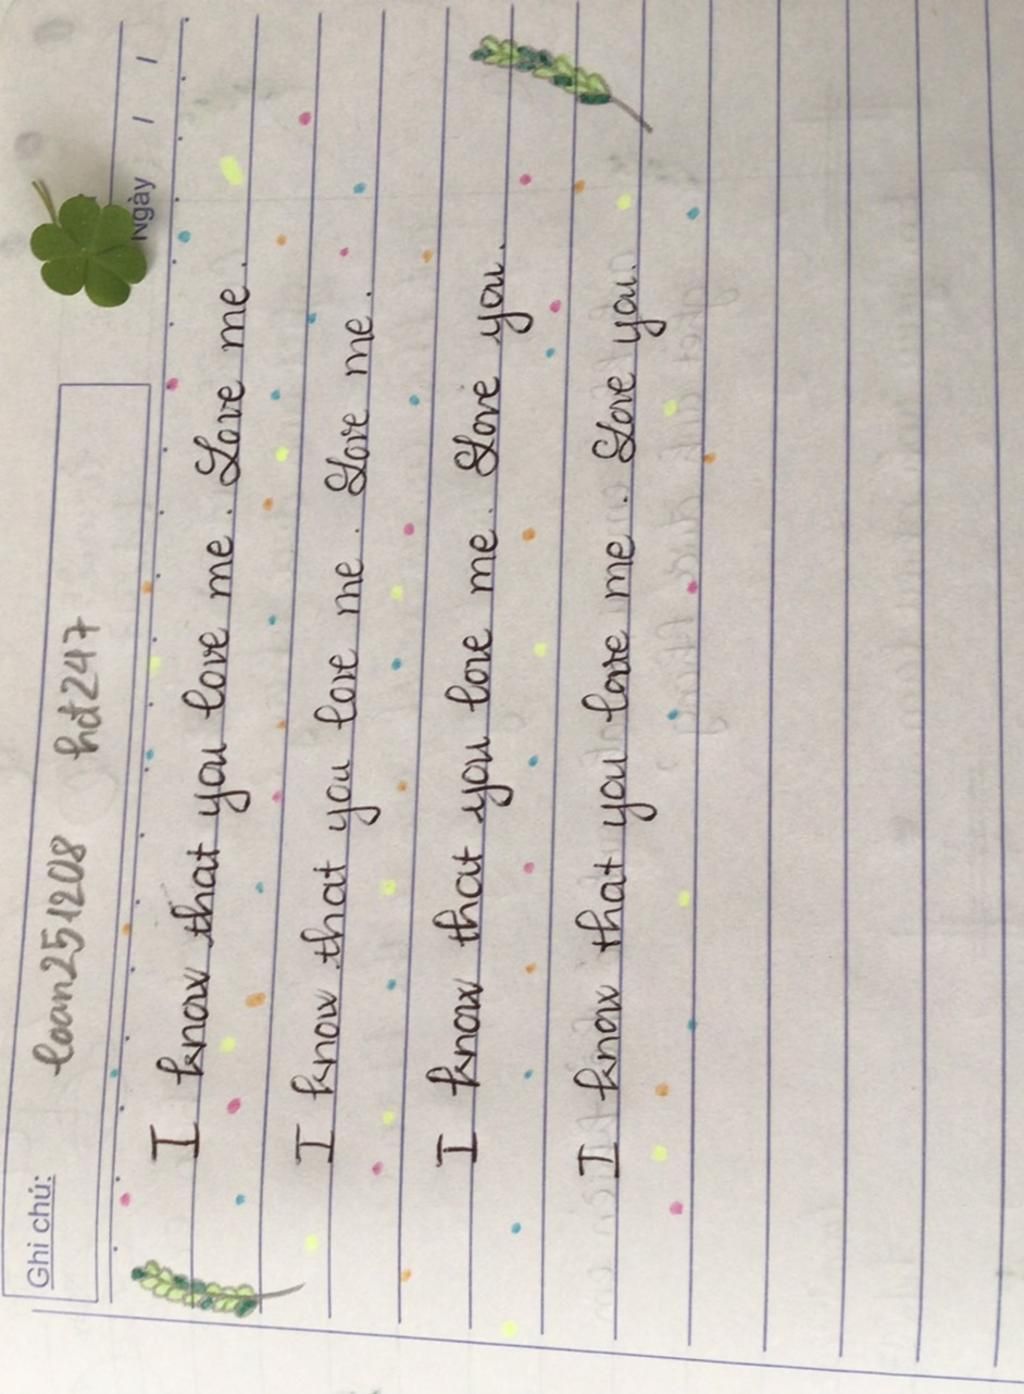 Ghi chú: loan251208 hdt247
Ngày / /
I know that you love me. Love me.
I know that you love me. Love me.
I know that you love me. Love you.
I know that you love me. Love you.